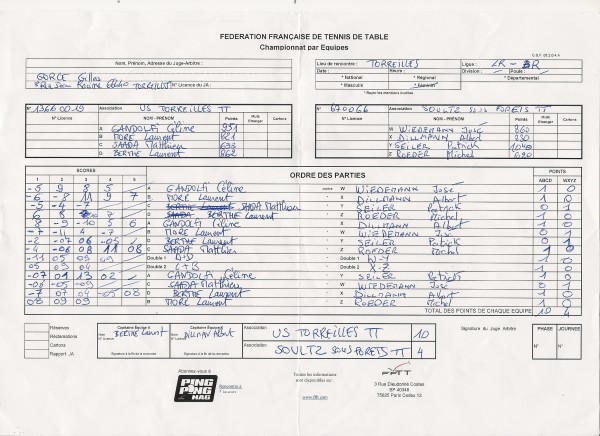 FEDERATION FRANÇAISE DE TENNIS DE TABLE
Championnat par Equipes
Nom, Prénom, Adresse du Juge-Arbitre :
GORCE Gilles
N° Licence du JA :
Lieu de rencontre : TORREILLES
Ligue : LR -
Date : Heure : Division : Poule :
* National * Régional * Départemental
* Masculin * Féminin
* Rayer les mentions inutiles
N° Association US TORREILLES TT
N° Licence NOM - PRÉNOM Points Muté Etranger Cartons
A GANDOLFI Céline 931
B MORE Laurent 821
C SAADA Matthieu 693
D BERTHE Laurent 862
N° 670066 Association SOULTZ SOUS FORETS TT
N° Licence NOM - PRÉNOM Points Muté Etranger Cartons
W WIEDEMANN José 860
X DILLMANN Albert 830
Y SEILER Patrick 1049
Z ROEDER Michel 690
SCORES ORDRE DES PARTIES POINTS
1 2 3 4 5 ABCD WXYZ
-5 9 8 5 A GANDOLFI Céline W WIEDEMANN José 1 0
-6 -8 11 9 7 B MORE Laurent X DILLMANN Albert 1 0
-5 -4 -7 C SAADA Matthieu Y SEILER Patrick 0 1
6 8 7 D BERTHE Laurent Z ROEDER Michel 1 0
8 -9 -10 5 6 A GANDOLFI Céline X DILLMANN Albert 1 0
-7 -11 4 -7 B MORE Laurent W WIEDEMANN José 0 1
-2 -07 06 -05 D BERTHE Laurent Y SEILER Patrick 0 1
-4 -06 08 11 08 C SAADA Matthieu Z ROEDER Michel 1 0
-11 05 09 09 Double 1 A+D Double 1 W-Y 1 0
05 09 04 Double 2 C+B Double 2 X-Z 1 0
-07 01 13 02 A GANDOLFI Céline Y SEILER Patrick 1 0
-06 -05 -09 C SAADA Matthieu W WIEDEMANN José 0 1
-7 07 04 -05 08 D BERTHE Laurent X DILLMANN Albert 1 0
08 09 09 B MORE Laurent Z ROEDER Michel 1 0
TOTAL DES POINTS DE CHAQUE EQUIPE 10 4
Réserves
Réclamations
Cartons
Rapport JA
Capitaine Equipe A
BERTHE Laurent
N° Licence
Signature à la fin de la rencontre
DILLMAN Albert
Signature à la fin de la rencontre
Association US TORREILLES TT 10
Association SOULTZ SOUS FORETS TT 4
Signature du Juge Arbitre
PHASE JOURNEE
N° N°
Abonnez-vous à
PING PONG MAG
Toutes les informations
sont disponibles sur:
www.fftt.com
FFTT
3 Rue Dieudonné Costes
BP 40348
75625 Paris Cedex 13